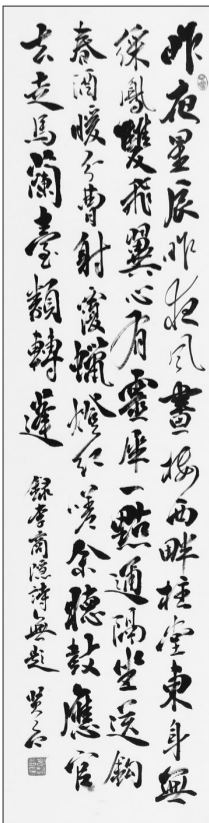 昨夜星辰昨夜風畫樓西畔桂堂東身無
綵鳳雙飛翼心有靈犀一點通隔坐送鈎
春酒暖分曹射覆蠟燈紅嗟余聽鼓應官
去走馬蘭臺類轉蓬
錄李商隱詩無題